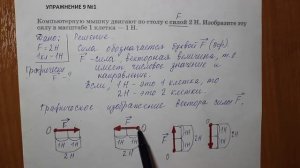 УПРАЖНЕНИЕ 9 №1
Компьютерную мышку двигают по столу с силой 2 Н. Изобразите эту
силу в масштабе 1 клетка — 1 Н.
Дано: Решение
F = 2Н Сила обозначается буквой F (вектор)
1кл - 1Н Сила, векторная величина, т.е.
Графически имеет числовое значение и
F - ? направление.
Если, 1Н - это 1 клетка, то
2Н - это 2 клетки.
Графическое изображение вектора силы F.
F F F
О О О
1Н 1Н 1Н 1Н 1Н 2Н 1Н 2Н
2Н 2Н 1Н 1Н О